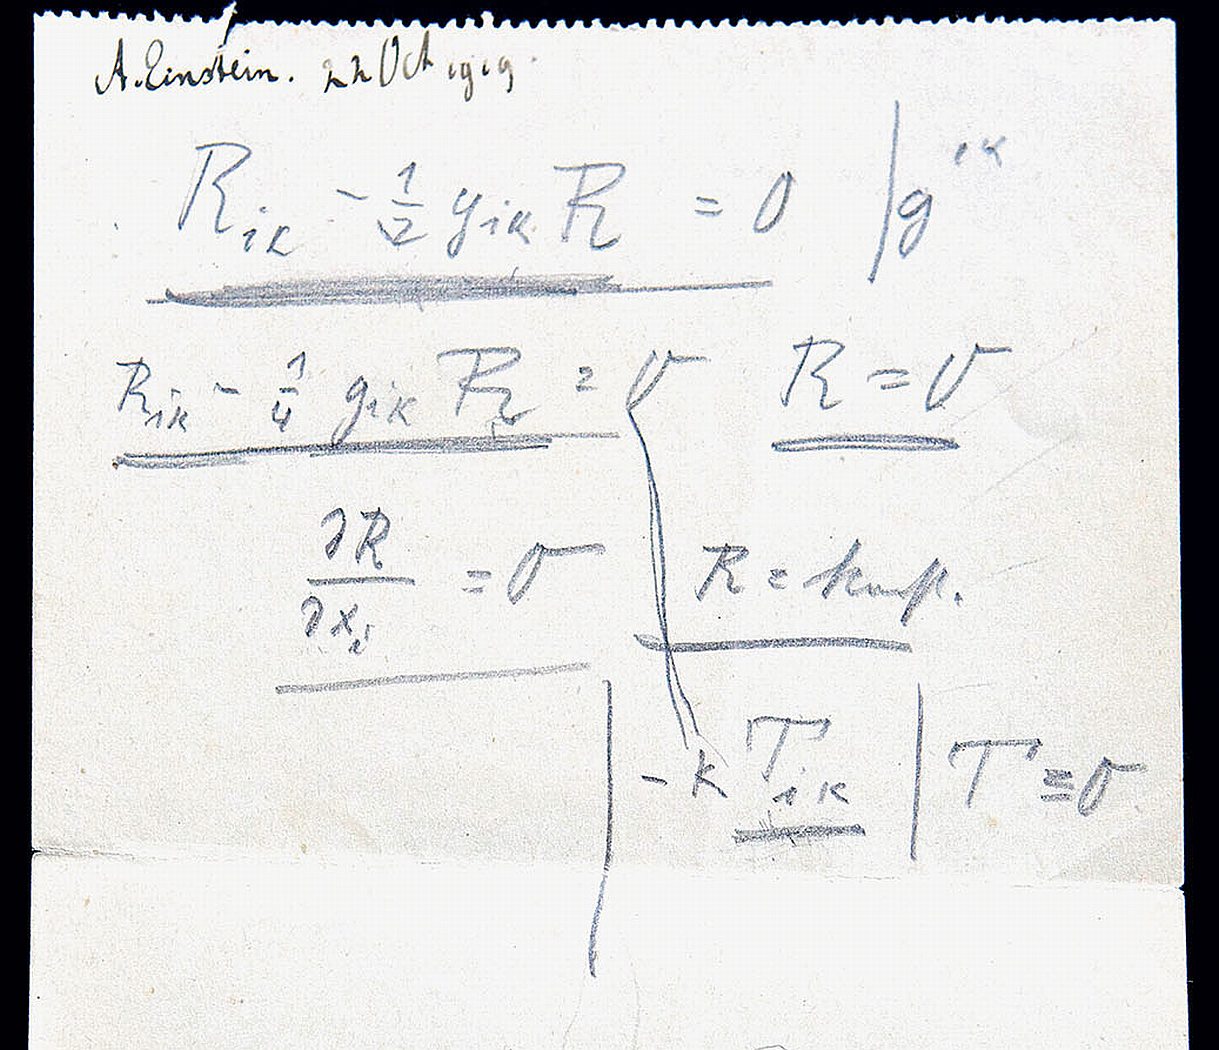 A. Einstein. 22 Oct 1919.
R_{ik} - 1/2 g_{ik} R = 0 | g^{ik}
R_{ik} - 1/4 g_{ik} R = 0 R = 0
∂R/∂x_i = 0 R = konst.
| - κ T_{ik} | T ≡ 0